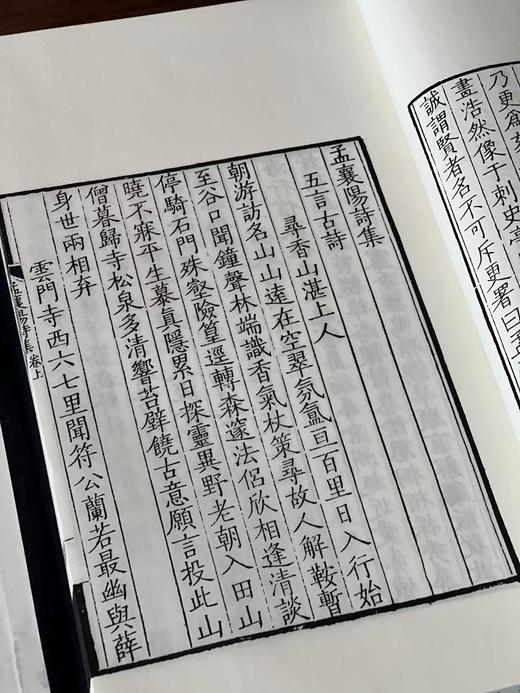 乃更創
畫浩然像于刺史亭
誠謂賢者名不可斥更署曰
孟襄陽詩集
五言古詩
尋香山湛上人
朝游訪名山山遠在空翠氛氳亘百里日入行始
至谷口聞鐘聲林端識香氣杖策尋故人解鞍暫
停騎石門殊叡險篁逕轉森邃法侶欣相逢清談
曉不寐平生慕眞隱累日探靈異野老朝入田山
僧暮歸寺松泉多清響苔壁饒古意願言投此山
身世兩相弃
雲門寺西六七里聞符公蘭若最幽與薛
孟襄陽詩集 卷上